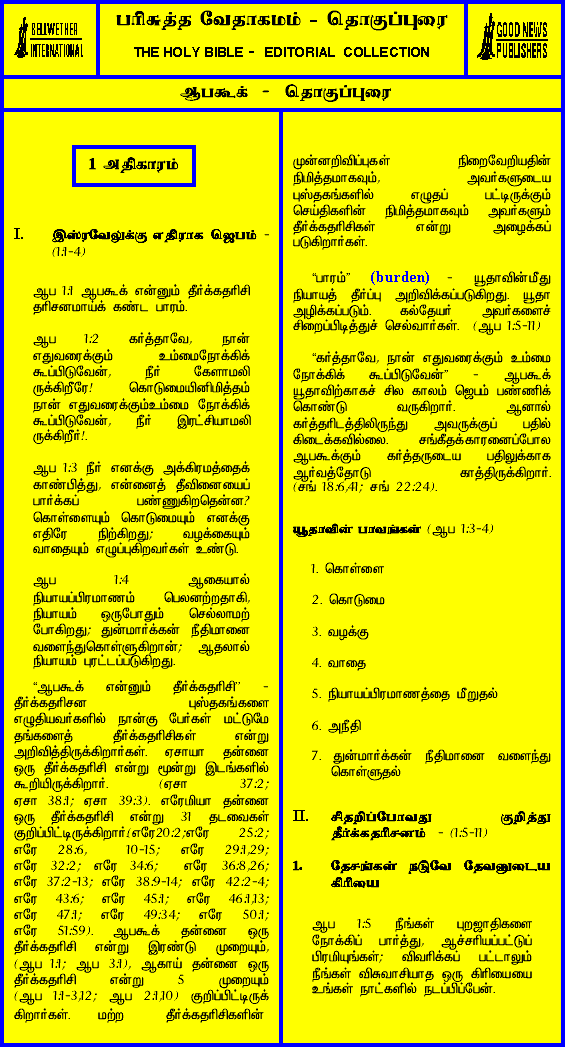 BELLWETHER
INTERNATIONAL
பரிசுத்த வேதாகமம் - தொகுப்புரை
THE HOLY BIBLE - EDITORIAL COLLECTION
GOOD NEWS
PUBLISHERS
ஆபகூக் - தொகுப்புரை
1 அதிகாரம்
I. இஸ்ரவேலுக்கு எதிராக ஜெபம் -
(1:1-4)
ஆப 1:1 ஆபகூக் என்னும் தீர்க்கதரிசி
தரிசனமாய்க் கண்ட பாரம்.
ஆப 1:2 கர்த்தாவே, நான்
எதுவரைக்கும் உம்மைநோக்கிக்
கூப்பிடுவேன், நீர் கேளாமலி
ருக்கிறீரே! கொடுமையினிமித்தம்
நான் எதுவரைக்கும்உம்மை நோக்கிக்
கூப்பிடுவேன், நீர் இரட்சியாமலி
ருக்கிறீர்!.
ஆப 1:3 நீர் எனக்கு அக்கிரமத்தைக்
காண்பித்து, என்னைத் தீவினையைப்
பார்க்கப் பண்ணுகிறதென்ன?
கொள்ளையும் கொடுமையும் எனக்கு
எதிரே நிற்கிறது; வழக்கையும்
வாதையும் எழுப்புகிறவர்கள் உண்டு.
ஆப 1:4 ஆகையால்
நியாயப்பிரமாணம் பெலனற்றதாகி,
நியாயம் ஒருபோதும் செல்லாமற்
போகிறது; துன்மார்க்கன் நீதிமானை
வளைந்துகொள்ளுகிறான்; ஆதலால்
நியாயம் புரட்டப்படுகிறது.
“ஆபகூக் என்னும் தீர்க்கதரிசி” -
தீர்க்கதரிசன புஸ்தகங்களை
எழுதியவர்களில் நான்கு பேர்கள் மட்டுமே
தங்களைத் தீர்க்கதரிசிகள் என்று
அறிவித்திருக்கிறார்கள். ஏசாயா தன்னை
ஒரு தீர்க்கதரிசி என்று மூன்று இடங்களில்
கூறியிருக்கிறார். (ஏசா 37:2;
ஏசா 38:1; ஏசா 39:3). எரேமியா தன்னை
ஒரு தீர்க்கதரிசி என்று 31 தடவைகள்
குறிப்பிட்டிருக்கிறார்.(எரே20:2;எரே 25:2;
எரே 28:6, 10-15; எரே 29:1,29;
எரே 32:2; எரே 34:6; எரே 36:8,26;
எரே 37:2-13; எரே 38:9-14; எரே 42:2-4;
எரே 43:6; எரே 45:1; எரே 46:1,13;
எரே 47:1; எரே 49:34; எரே 50:1;
எரே 51:59). ஆபகூக் தன்னை ஒரு
தீர்க்கதரிசி என்று இரண்டு முறையும்,
(ஆப 1:1; ஆப 3:1), ஆகாய் தன்னை ஒரு
தீர்க்கதரிசி என்று 5 முறையும்
(ஆப 1:1-3,12; ஆப 2:1,10) குறிப்பிட்டிருக்
கிறார்கள். மற்ற தீர்க்கதரிசிகளின்
முன்னறிவிப்புகள் நிறைவேறியதின்
நிமித்தமாகவும், அவர்களுடைய
புஸ்தகங்களில் எழுதப் பட்டிருக்கும்
செய்திகளின் நிமித்தமாகவும் அவர்களும்
தீர்க்கதரிசிகள் என்று அழைக்கப்
படுகிறார்கள்.
“பாரம்” (burden) - யூதாவின்மீது
நியாயத் தீர்ப்பு அறிவிக்கப்படுகிறது. யூதா
அழிக்கப்படும். கல்தேயர் அவர்களைச்
சிறைப்பிடித்துச் செல்வார்கள். (ஆப 1:5-11)
“கர்த்தாவே, நான் எதுவரைக்கும் உம்மை
நோக்கிக் கூப்பிடுவேன்” - ஆபகூக்
யூதாவிற்காகச் சில காலம் ஜெபம் பண்ணிக்
கொண்டு வருகிறார். ஆனால்
கர்த்தரிடத்திலிருந்து அவருக்குப் பதில்
கிடைக்கவில்லை. சங்கீதக்காரனைப்போல
ஆபகூக்கும் கர்த்தருடைய பதிலுக்காக
ஆர்வத்தோடு காத்திருக்கிறார்.
(சங் 18:6,41; சங் 22:24).
யூதாவின் பாவங்கள் (ஆப 1:3-4)
1. கொள்ளை
2. கொடுமை
3. வழக்கு
4. வாதை
5. நியாயப்பிரமாணத்தை மீறுதல்
6. அநீதி
7. துன்மார்க்கன் நீதிமானை வளைந்து
கொள்ளுதல்
II. சிதறிப்போவது குறித்து
தீர்க்கதரிசனம் - (1:5-11)
1. தேசங்கள் நடுவே தேவனுடைய
கிரியை
ஆப 1:5 நீங்கள் புறஜாதிகளை
நோக்கிப் பார்த்து, ஆச்சரியப்பட்டுப்
பிரமியுங்கள்; விவரிக்கப் பட்டாலும்
நீங்கள் விசுவாசியாத ஒரு கிரியையை
உங்கள் நாட்களில் நடப்பிப்பேன்.